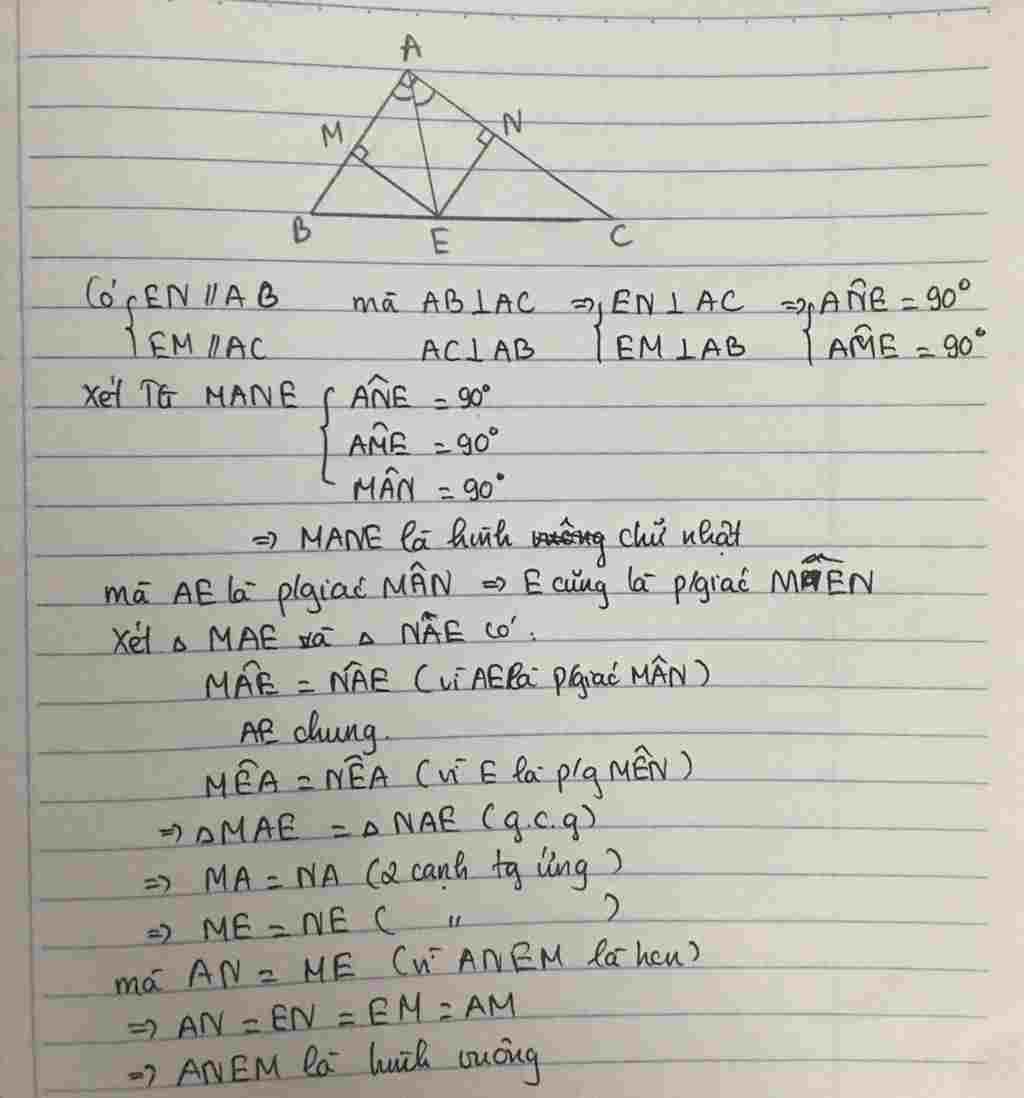 A
M
N
B
E
C
Có { EN // AB mà AB ⊥ AC ⇒ { EN ⊥ AC ⇒ { AN̂E = 90°
EM // AC AC ⊥ AB EM ⊥ AB AM̂E = 90°
Xét TG MANE { AN̂E = 90°
AM̂E = 90°
MÂN = 90°
⇒ MANE là hình vuông chữ nhật
mà AE là p/giác MÂN ⇒ E cũng là p/giác MÊN
Xét △ MAE và △ NAE có:
MÂE = NÂE (vì AE là p/giác MÂN)
AE chung.
MÊA = NÊA (vì E là p/g MÊN)
⇒ △MAE = △NAE (g.c.g)
⇒ MA = NA (2 cạnh tg ứng)
⇒ ME = NE ( " )
mà AN = ME (vì ANEM là hcn)
⇒ AN = EN = EM = AM
⇒ ANEM là hình vuông